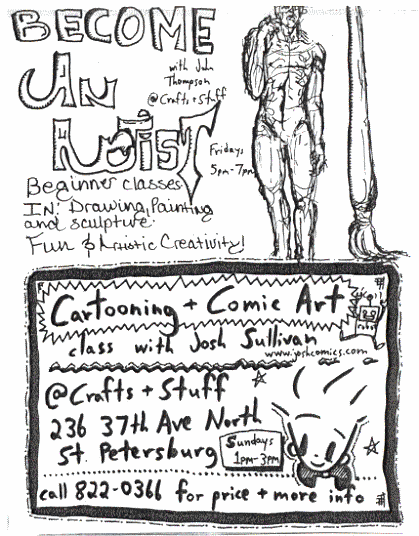 BECOME
AN
ARTIST
with John
Thompson
@Crafts + Stuff
Fridays
5pm-7pm
Beginner classes
IN: Drawing, Painting
and sculpture.
Fun & Artistic Creativity!
Cartooning + Comic Art
class with Josh Sullivan
www.joshcomics.com
@Crafts + Stuff
236 37th Ave North
St. Petersburg
Sundays
1pm-3pm
call 822-0366 for price + more info